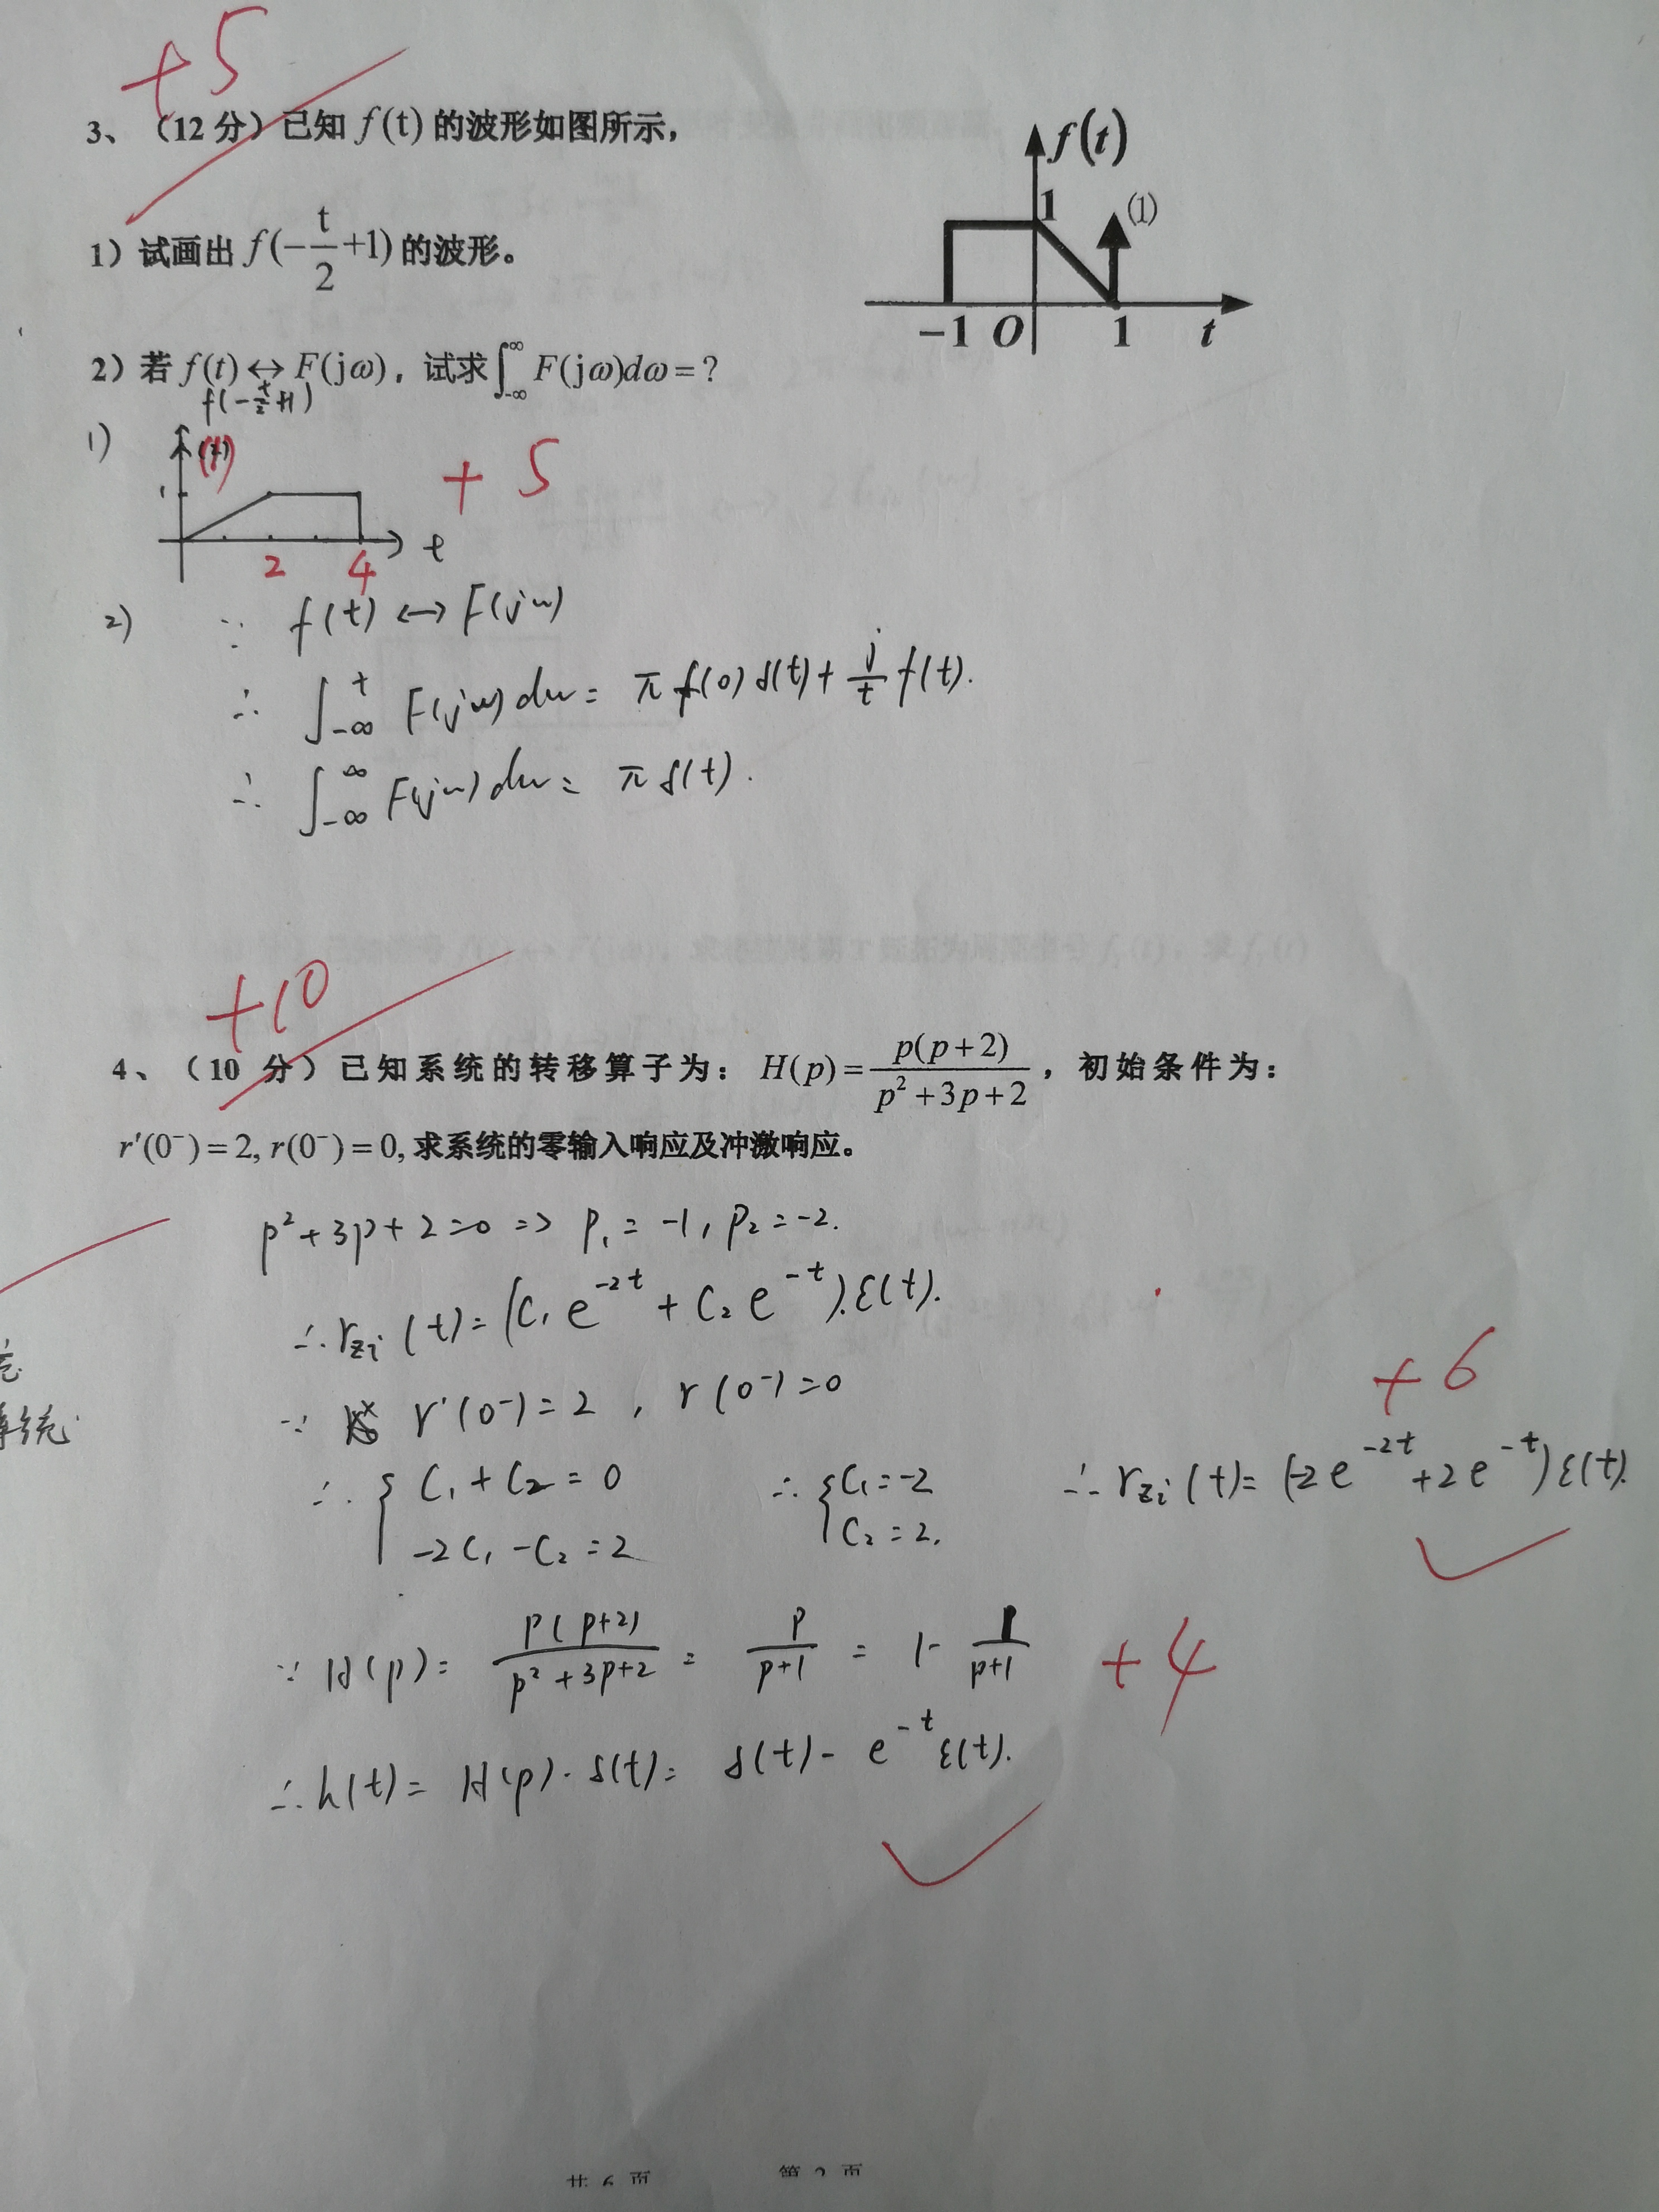 +5
3、（12分）已知 f(t) 的波形如图所示，
f(t)
1
(1)
-1 O 1 t
1）试画出 f(-t/2+1) 的波形。
2）若 f(t)↔F(jω)，试求∫_{-∞}^{∞} F(jω)dω=?
f(-t/2+1)
1)
(1)
1
+5
2 4 t
2) ∵ f(t) ↔ F(jω)
∴ ∫_{-∞}^{t} F(jω)dω = πf(0)δ(t)+ j/t f(t).
∴ ∫_{-∞}^{∞} F(jω)dω = πδ(t).
+10
4、（10 分）已知系统的转移算子为：H(p)=p(p+2)/(p²+3p+2)，初始条件为：
r′(0⁻)=2, r(0⁻)=0, 求系统的零输入响应及冲激响应。
p²+3p+2=0 => p₁=-1, p₂=-2.
∴ r_zi(t)=(C₁e^{-2t}+C₂e^{-t}).ε(t).
∵ r'(0⁻)=2, r(0⁻)=0
+6
∴ { C₁+C₂=0 ∴ { C₁=-2 ∴ r_zi(t)=(-2e^{-2t}+2e^{-t})ε(t).
-2C₁-C₂=2 C₂=2.
∵ H(p)= p(p+2)/(p²+3p+2) = p/(p+1) = 1- 1/(p+1) +4
∴ h(t)=H(p)·δ(t)=δ(t)-e^{-t}ε(t).
共 6 页 第 2 页